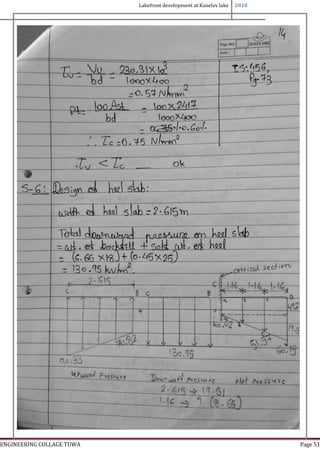 Lakefront development at Kanelav lake 2018
14
Page No.:
Date:
τv = Vu / bd = 230.31×10³ / 1000×400
I S: 456,
Pg-73
= 0.57 N/mm²
Pt = 100 Ast / bd = 100×2417 / 1000×400
= 0.60%
∴ τc = 0.75 N/mm²
∴ τv < τc ok
S-6: Design of heel slab:
width of heel slab = 2.615m
Total downward pressure on heel slab
= wt. of backfill + self wt. of heel
= (6.65 ×18) + (0.45×25)
= 130.95 kN/m².
critical section
2.615
C B C B C 1.16 1.16 1.16 D
70.52
90.33
130.95
40.02
51.37
60.15
Upward Pressure Downward Pressure Net Pressure
2.615 → 19.51
1.16 → ? (8.65)
ENGINEERING COLLAGE TUWA Page 51